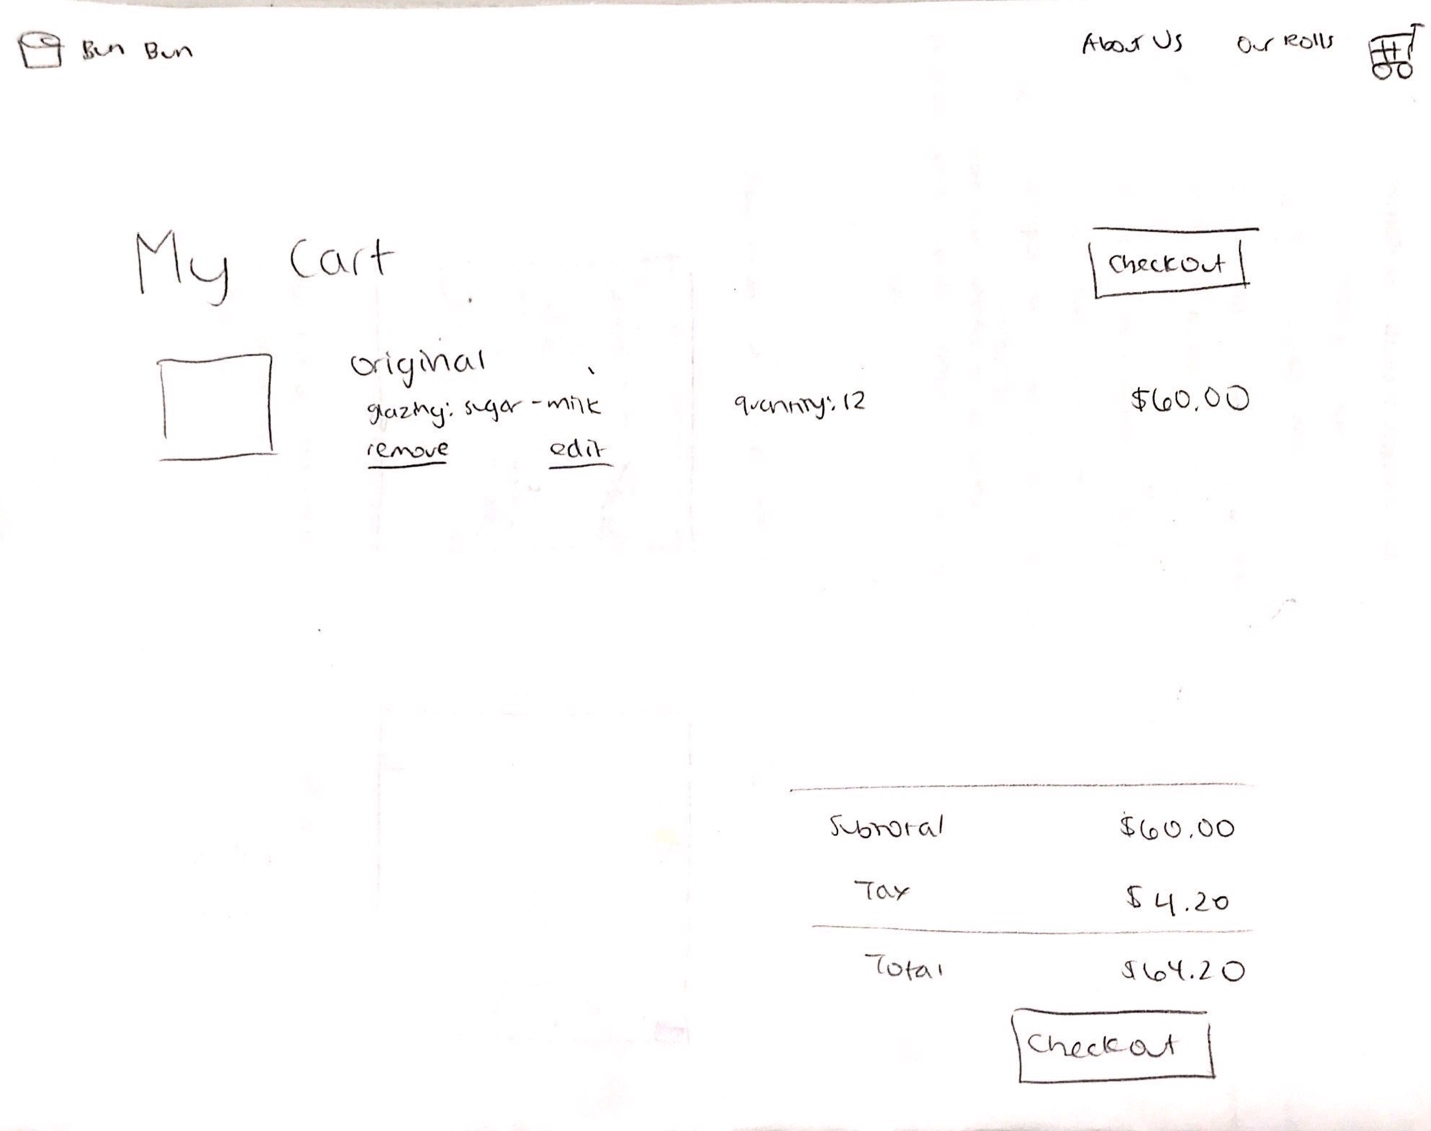 Bun Bun
About Us Our Rolls
My Cart
Checkout
original
glazing: sugar-milk
quantity: 12
$60.00
remove edit
Subtotal $60.00
Tax $4.20
Total $64.20
Checkout